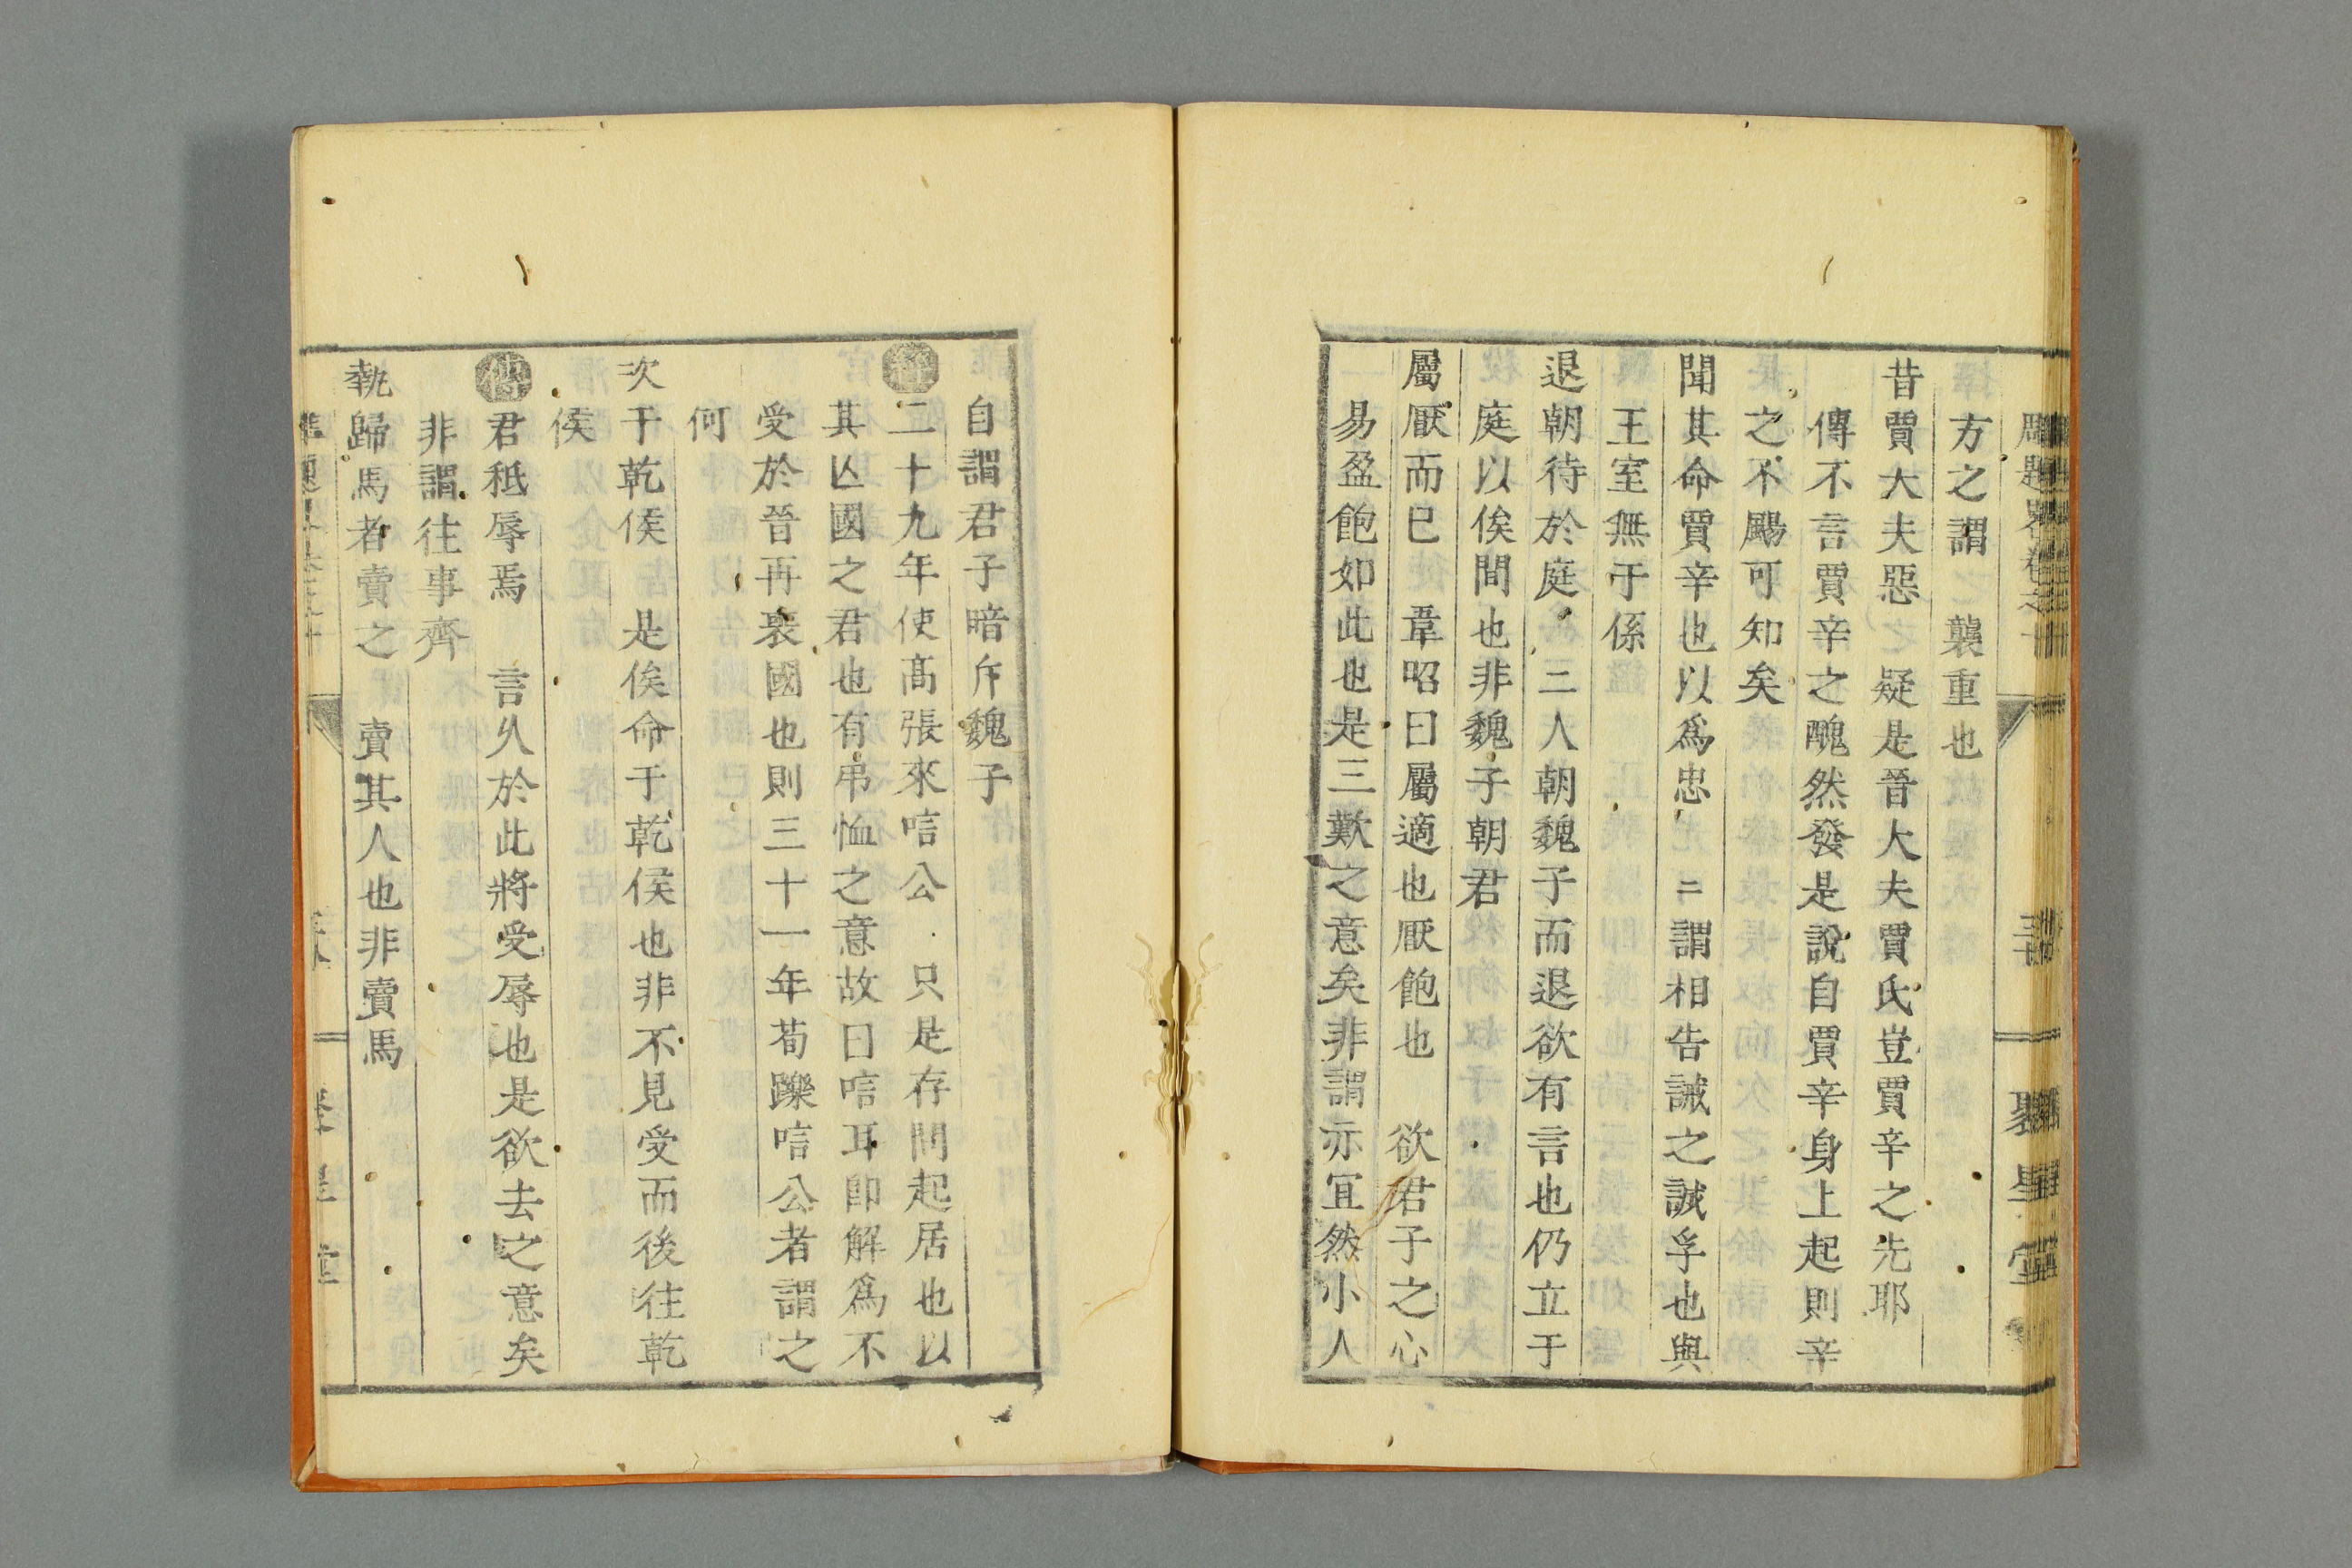 方之謂　襲重也
昔賈大夫惡　疑是晉大夫賈氏豈賈辛之先耶
傳不言賈辛之醜然發是說自賈辛身上起則辛
之不颺可知矣
聞其命賈辛也以爲忠　二謂相告誡之誠孚也與
王室無于係
退朝待於庭　二人朝魏子而退欲有言也仍立于
庭以俟間也非魏子朝君
屬厭而已　韋昭曰屬適也厭飽也　欲君子之心
易盈飽如此也是三歎之意矣非謂亦冝然小人
自謂君子暗斥魏子
經二十九年使高張來唁公　只是存問起居也以
其亾國之君也有弔恤之意故曰唁耳卽解爲不
受於晉再喪國也則三十一年荀躒唁公者謂之
何
次于乾侯　是俟命于乾侯也非不見受而後往乾
侯
傳君秖辱焉　言久於此將受辱也是欲去之意矣
非謂往事齊
執歸馬者賣之　賣其人也非賣馬